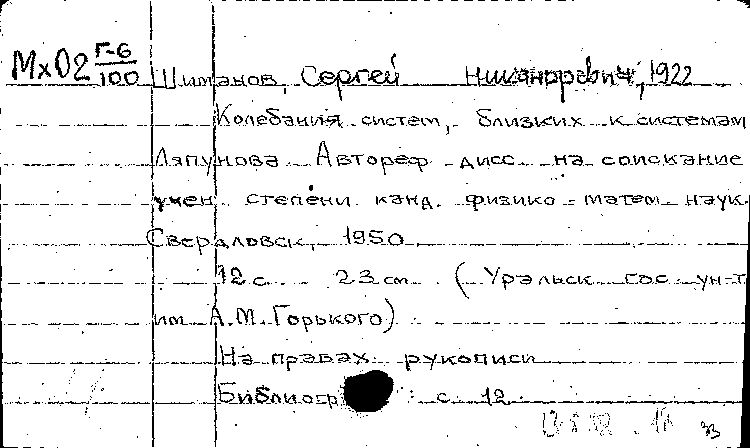 МхО2 Г-6/100 Шиманов, Сергей Никанорович, 1922
Колебания систем, близких к системам
Ляпунова Автореф дисс на соискание
учен степени канд. физико-матем наук.
Свердловск, 1950.
12 с. 23 см (Уральск гос ун-т
им А.М. Горького)
На правах рукописи
Библиогр : с 12